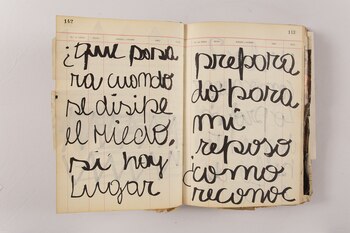 142
¿Que pasa
ra cuando
se disipe
el miedo,
si hay
lugar
143
prepara
do para
mi
reposo
¿como
reconoc